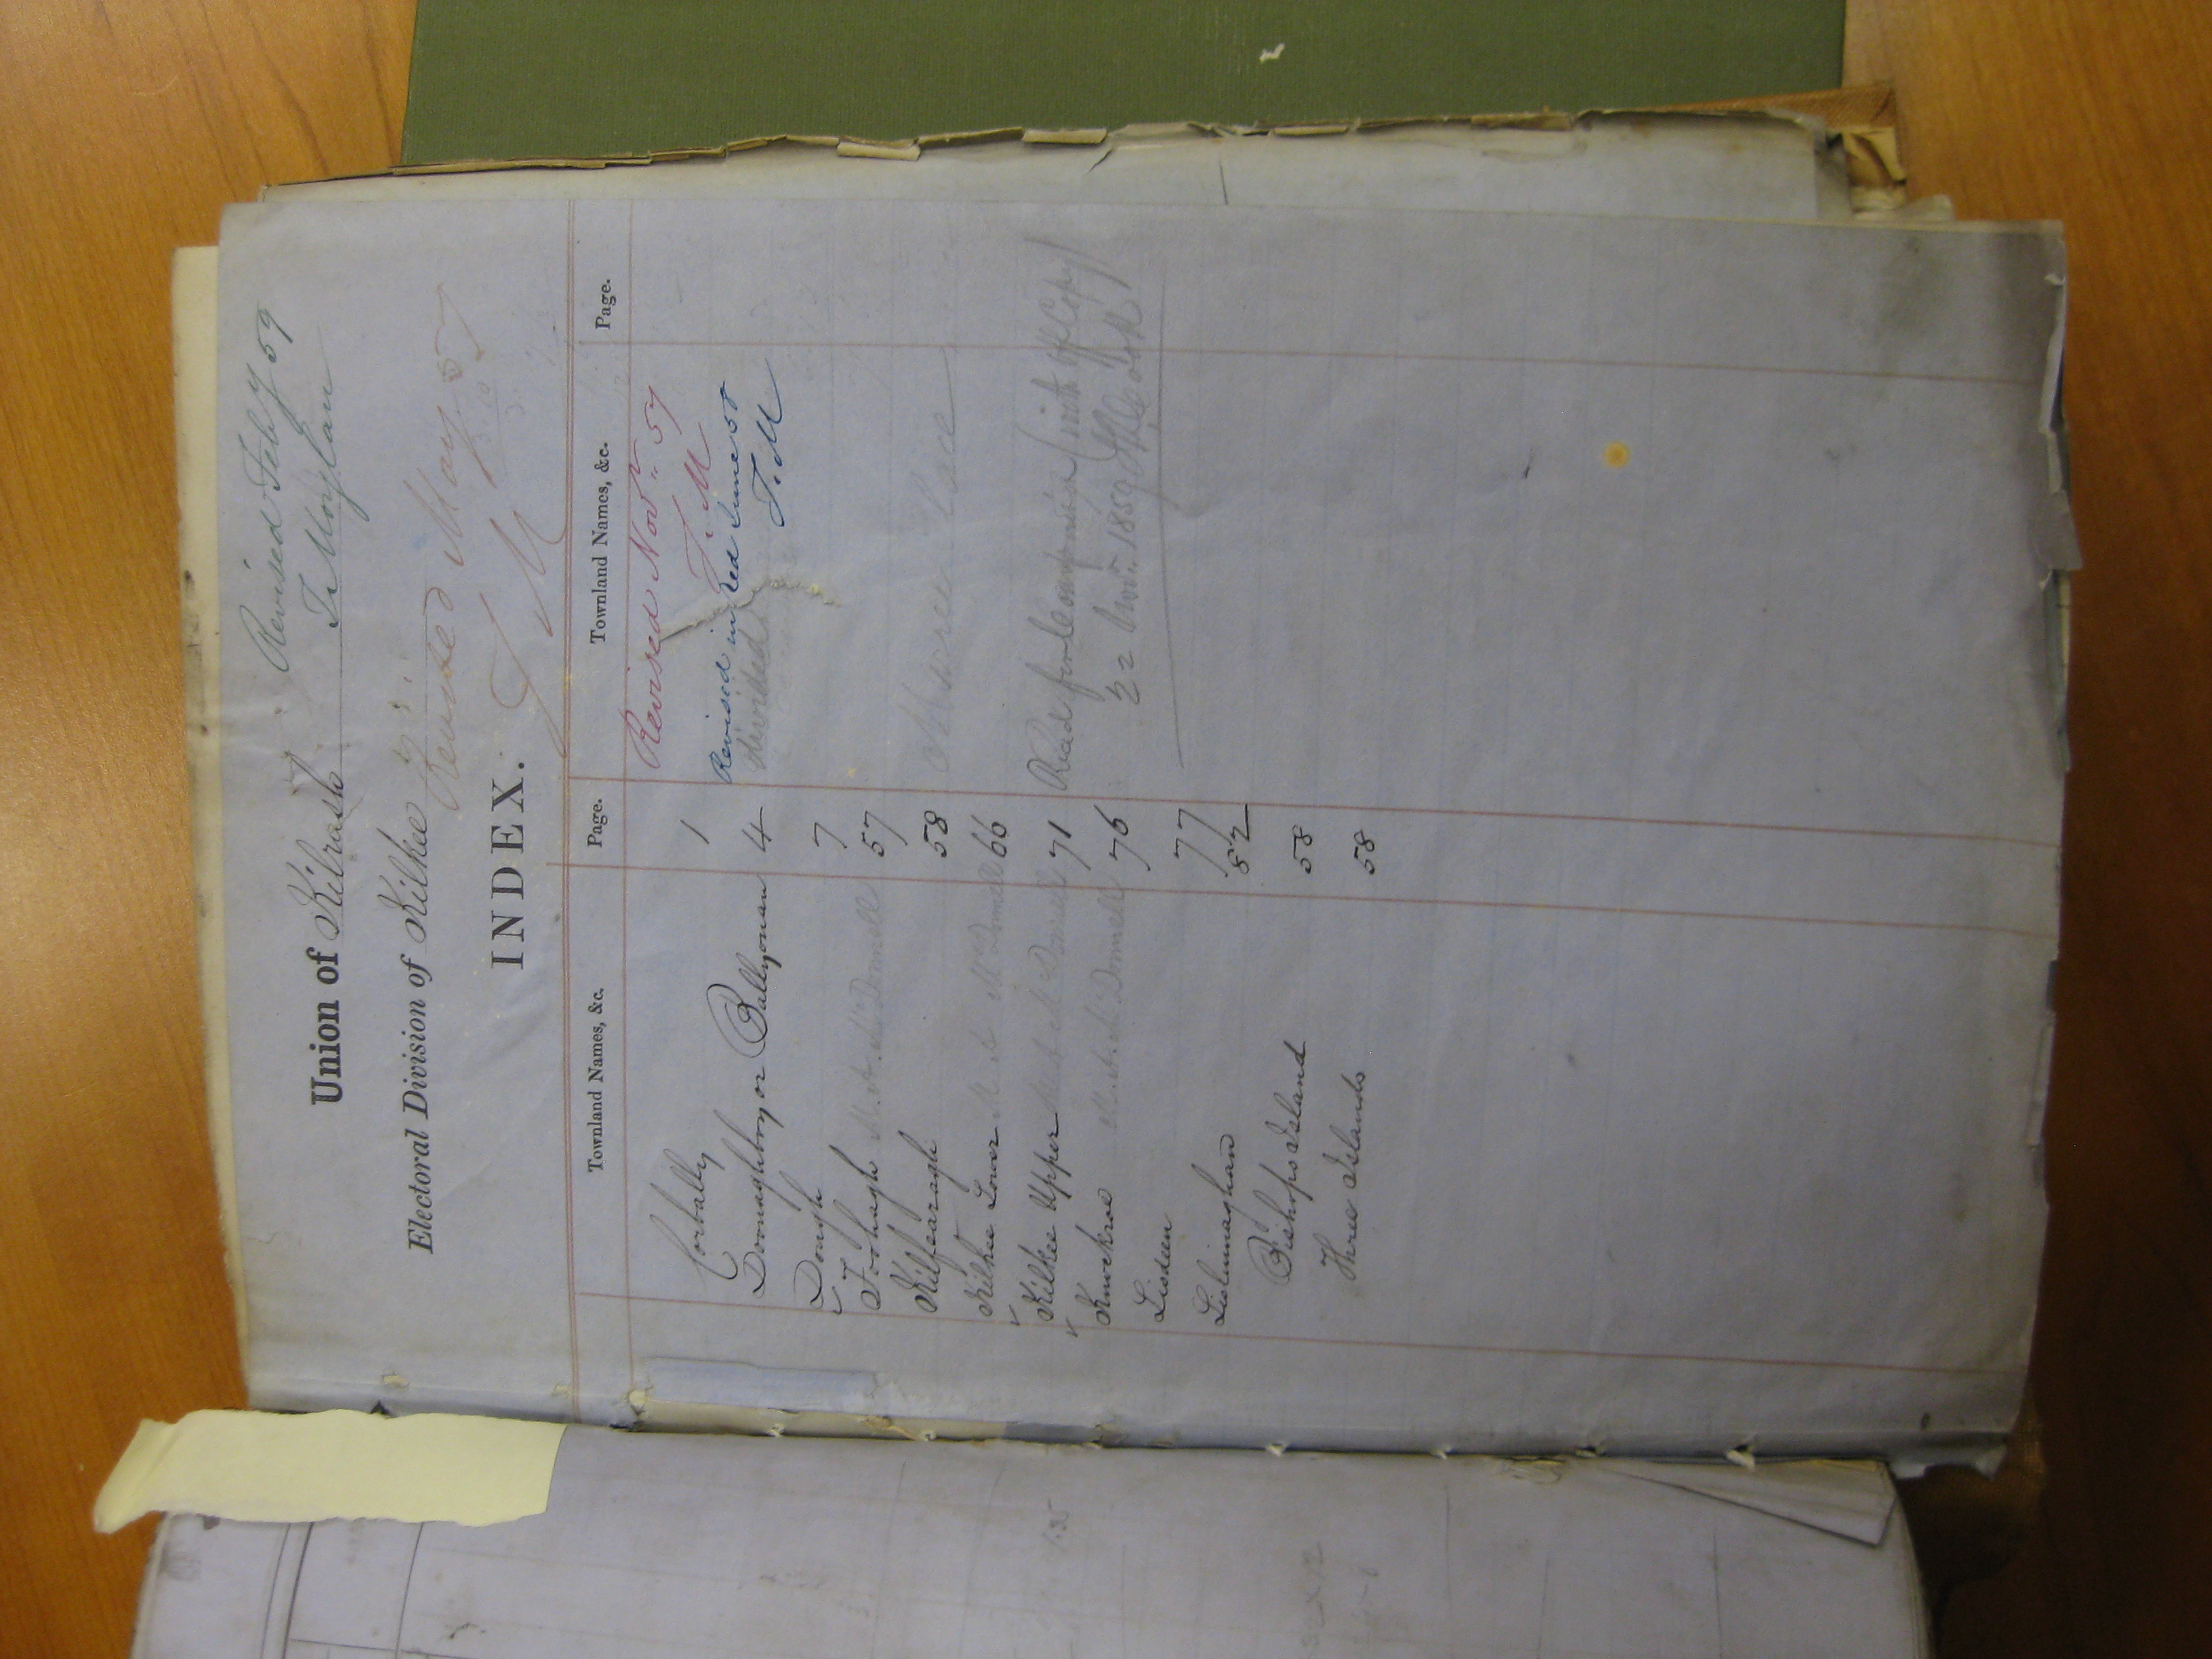 Revised Feby 59
Union of Kilrush
T. Moylan
Electoral Division of Kilkee
Revised May 57
INDEX.
Townland Names, &c. Page. Townland Names, &c. Page.
Corbally 1 Revised Novr. 57
T. M
Doonaghboy or Ballyonan 4 Revised in red June 58
divided
T. M
Dough 7
Foohagh M. A. McDonnell 57
Kilfearagh 58
Kilkee Lower M A McDonnell 66
Kilkee Upper McDonnell 71 Read for comparison with off copy
Knockroe M. A. McDonnell 76 22 Novr. 1859
Lisdeen 77
Lisluinaghan 82
Bishops Island 58
Three Islands 58